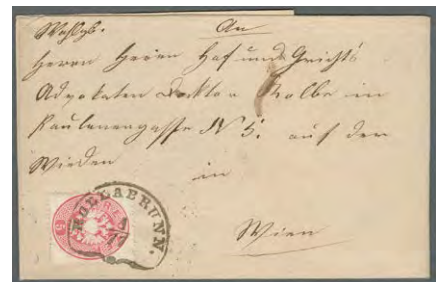 Wohlgb. An
Herrn Herrn Hof und Gerichts
Advokaten Doktor Kolbe in
Paulanergasse N 5. auf der
Wieden
in
Wien
HOLLABRUNN.